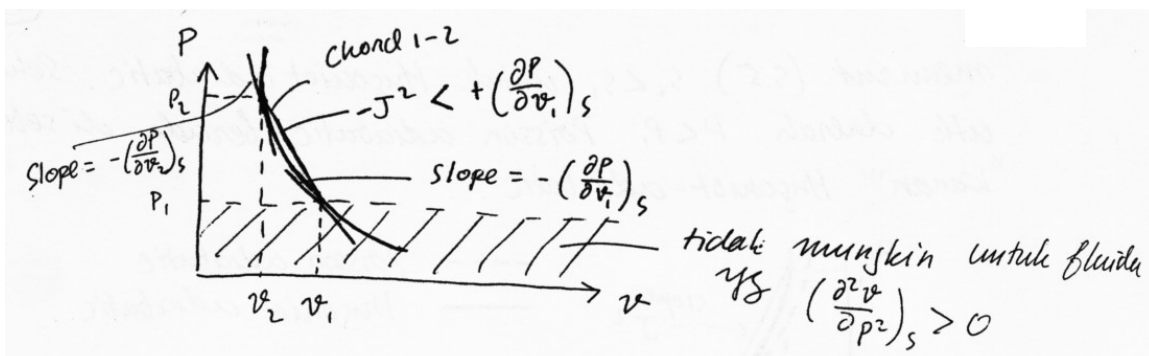 P
chord 1-2
P₂
-J² < +(∂P/∂v₁)ₛ
slope = -(∂P/∂v₂)ₛ
slope = -(∂P/∂v₁)ₛ
P₁
tidak mungkin untuk fluida
yg (∂²v/∂p²)ₛ > 0
v₂ v₁ v